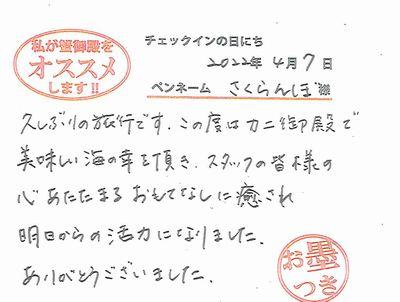 私が蟹御殿を
オススメ
します!!
チェックインの日にち
2022年 4月 7日
ペンネーム さくらんぼ 様
久しぶりの旅行です. この度はカニ御殿で
美味しい海の幸を頂き. スタッフの皆様の
心あたたまるおもてなしに癒され
明日からの活力になりました.
ありがとうございました.
お墨
つき